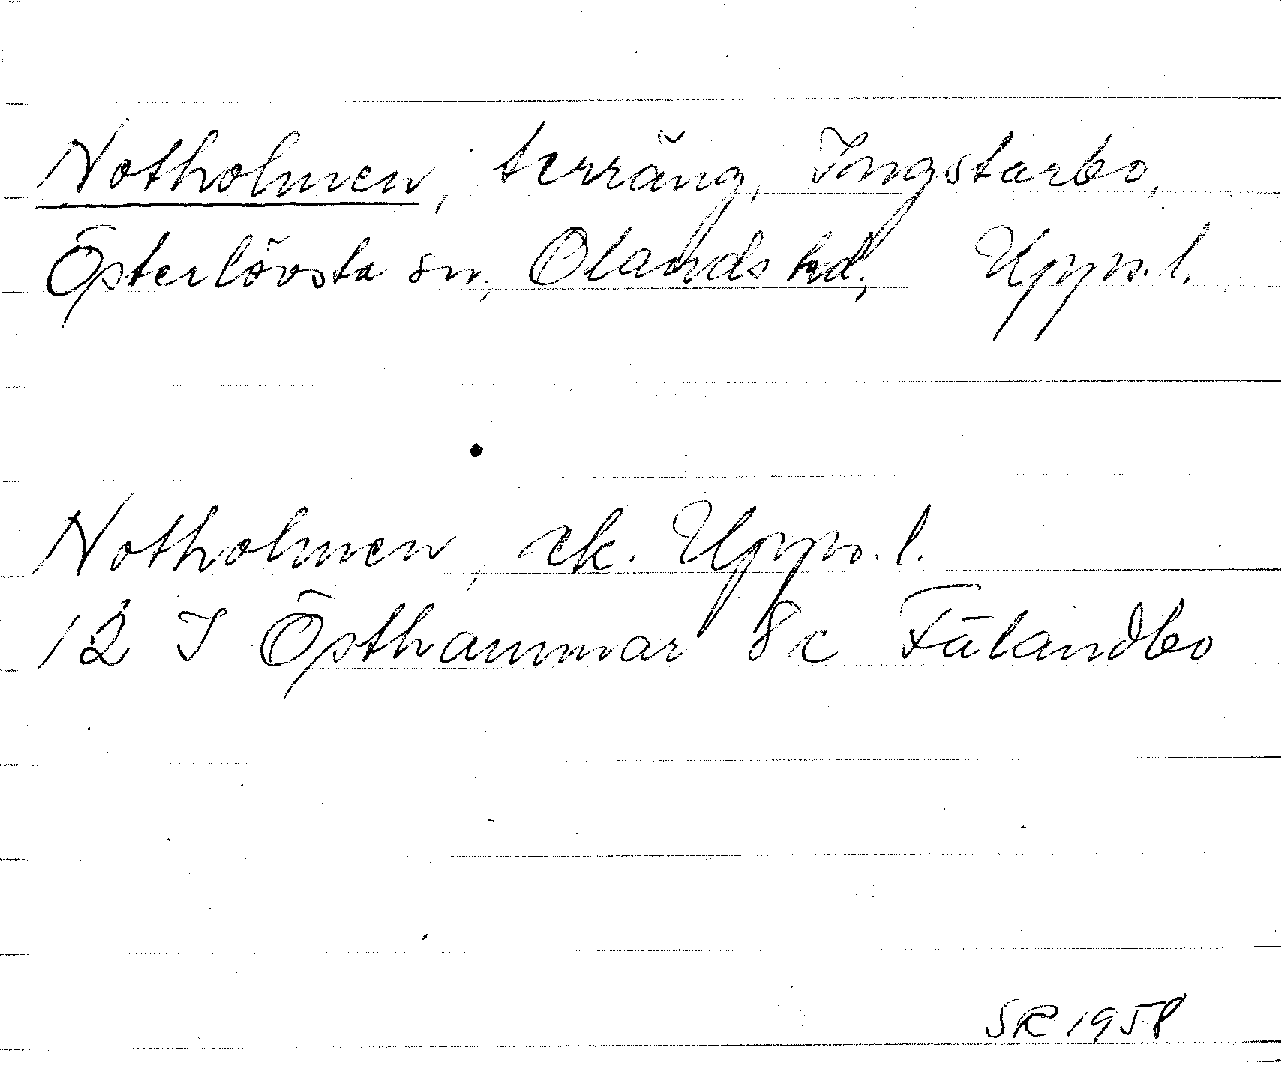 Notholmen, terräng, Ingstarbo,
Österlövsta sn, Olands hd, Upps. l.
Notholmen, ek. Upps. l.
12 I Östhammar 8c Fälandbo
SR 1958